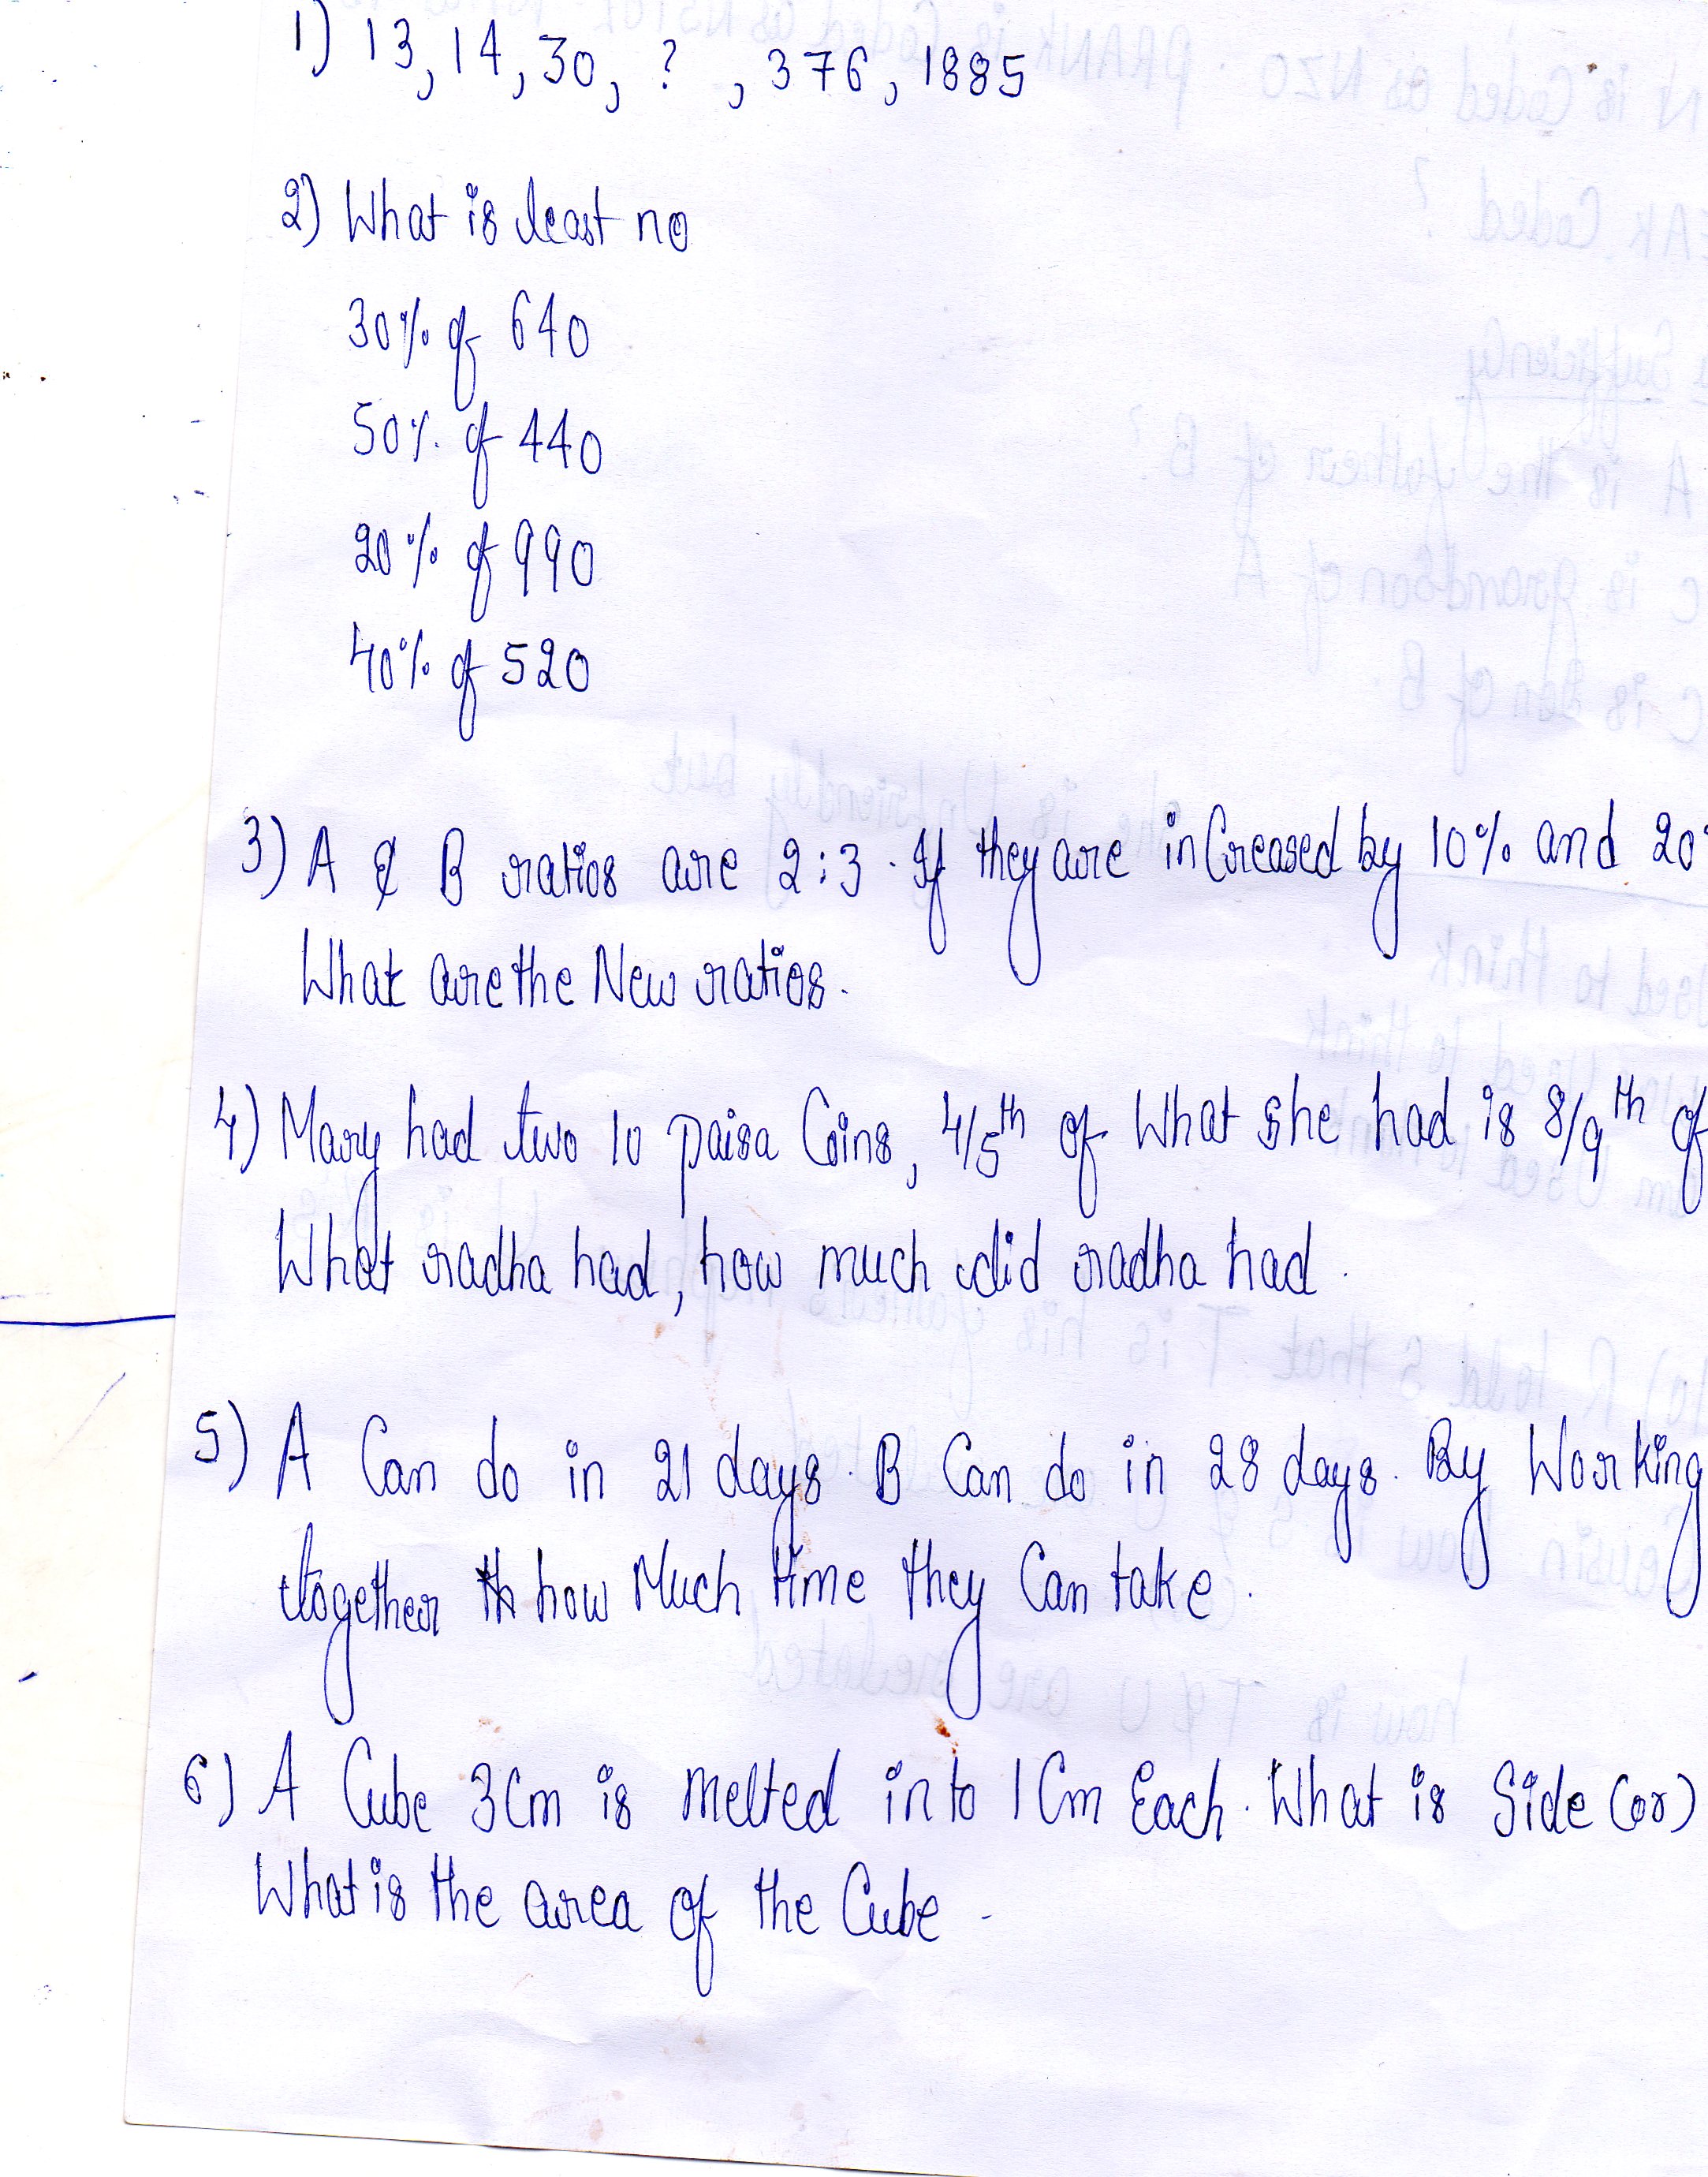 1) 13, 14, 30, ? , 376, 1885
2) What is least no
30% of 640
50% of 440
20% of 990
40% of 520
3) A & B ratios are 2:3. If they are increased by 10% and 20
What are the New ratios.
4) Mary had two 10 paisa Coins, 4/5th of What she had is 8/9th of
What radha had, how much did radha had.
5) A Can do in 21 days. B Can do in 28 days. By Working
together how Much time they Can take.
6) A Cube 3Cm is Melted in to 1 Cm Each. What is Side (or)
What is the area of the Cube.